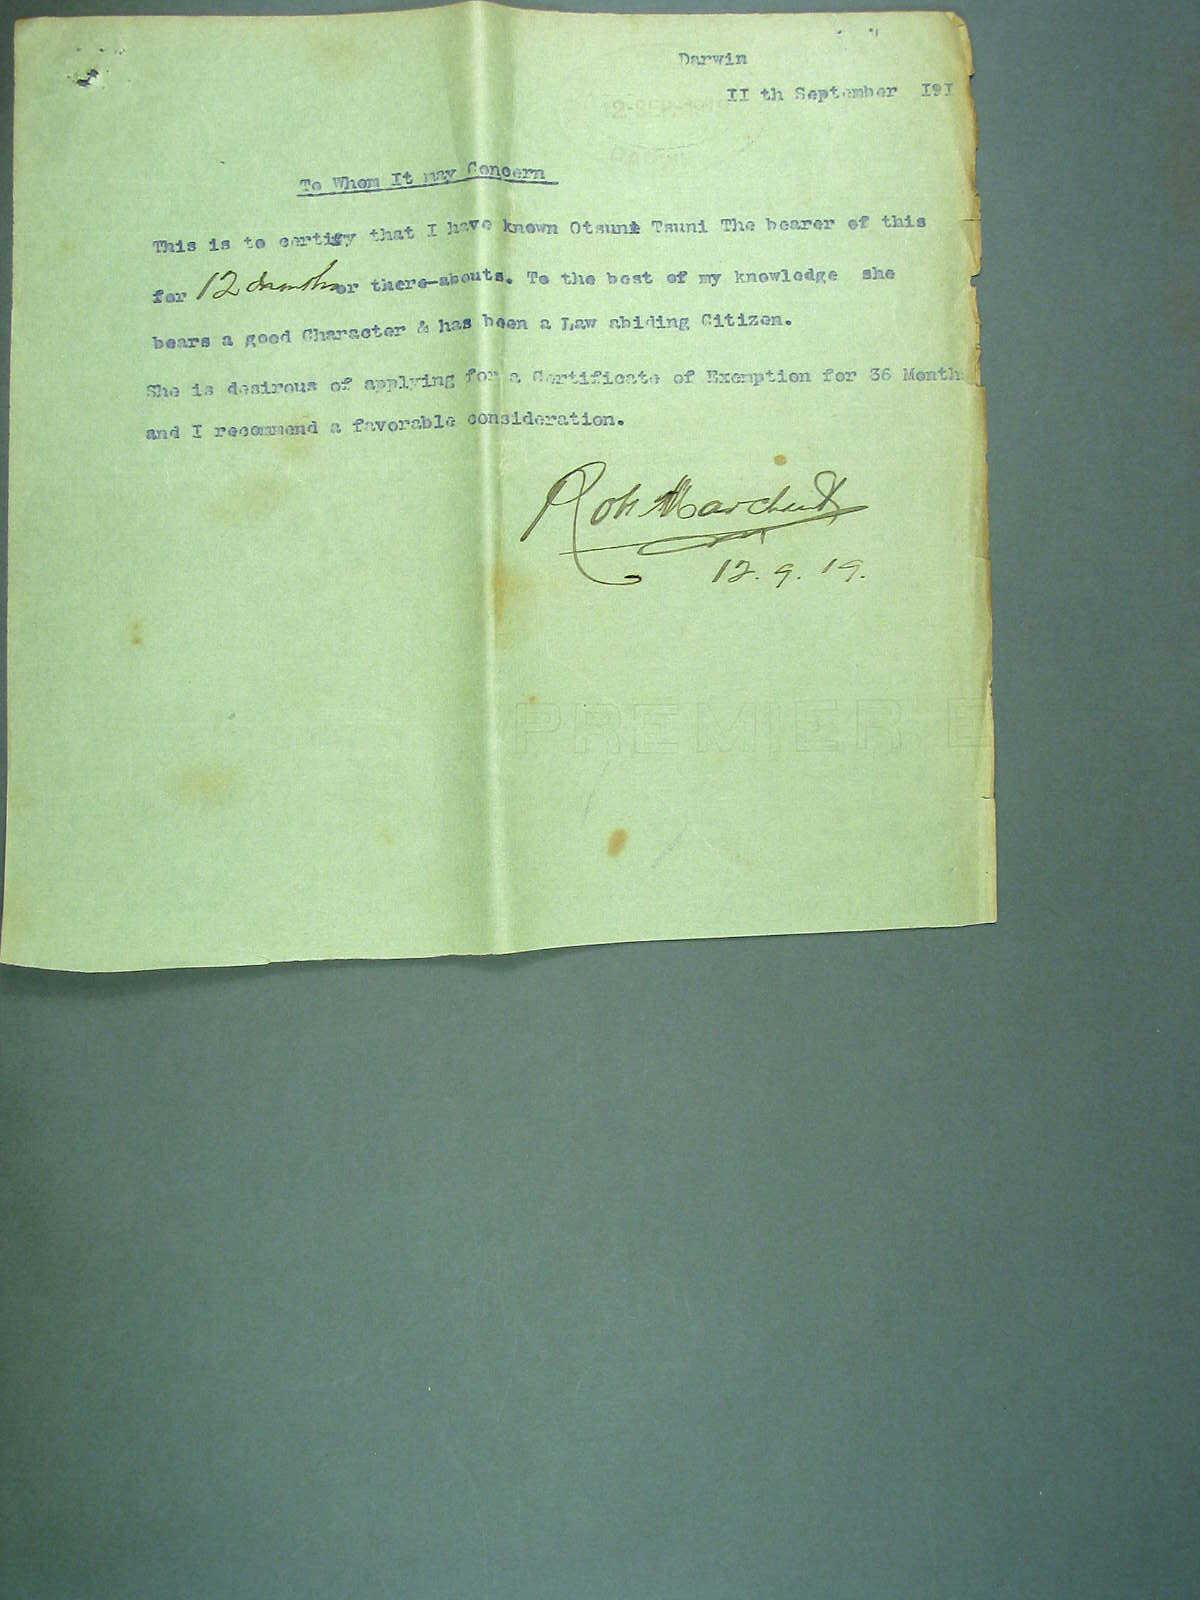 Darwin
II th September 191
12 SEP. 1919
To Whom It may Concern
This is to certify that I have known Otsuni Tsuni The bearer of this
for 12 months or there-abouts. To the best of my knowledge she
bears a good Character & has been a Law abiding Citizen.
She is desirous of applying for a Certificate of Exemption for 36 Month
and I recommend a favorable consideration.
12.9.19.
PREMIER